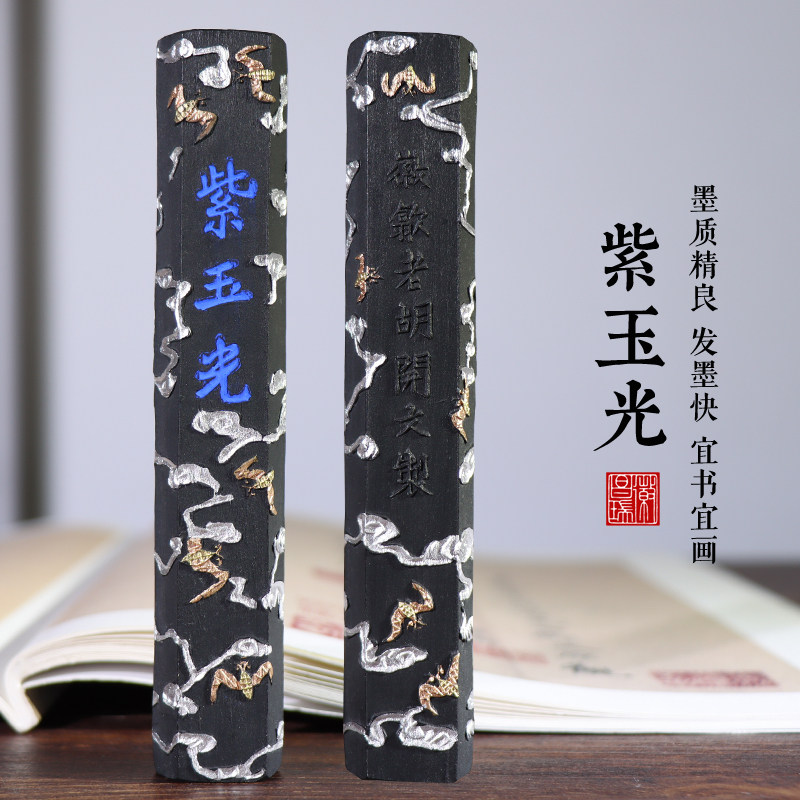 紫玉光
徽歙老胡開文製
紫玉光
墨质精良 发墨快 宜书宜画